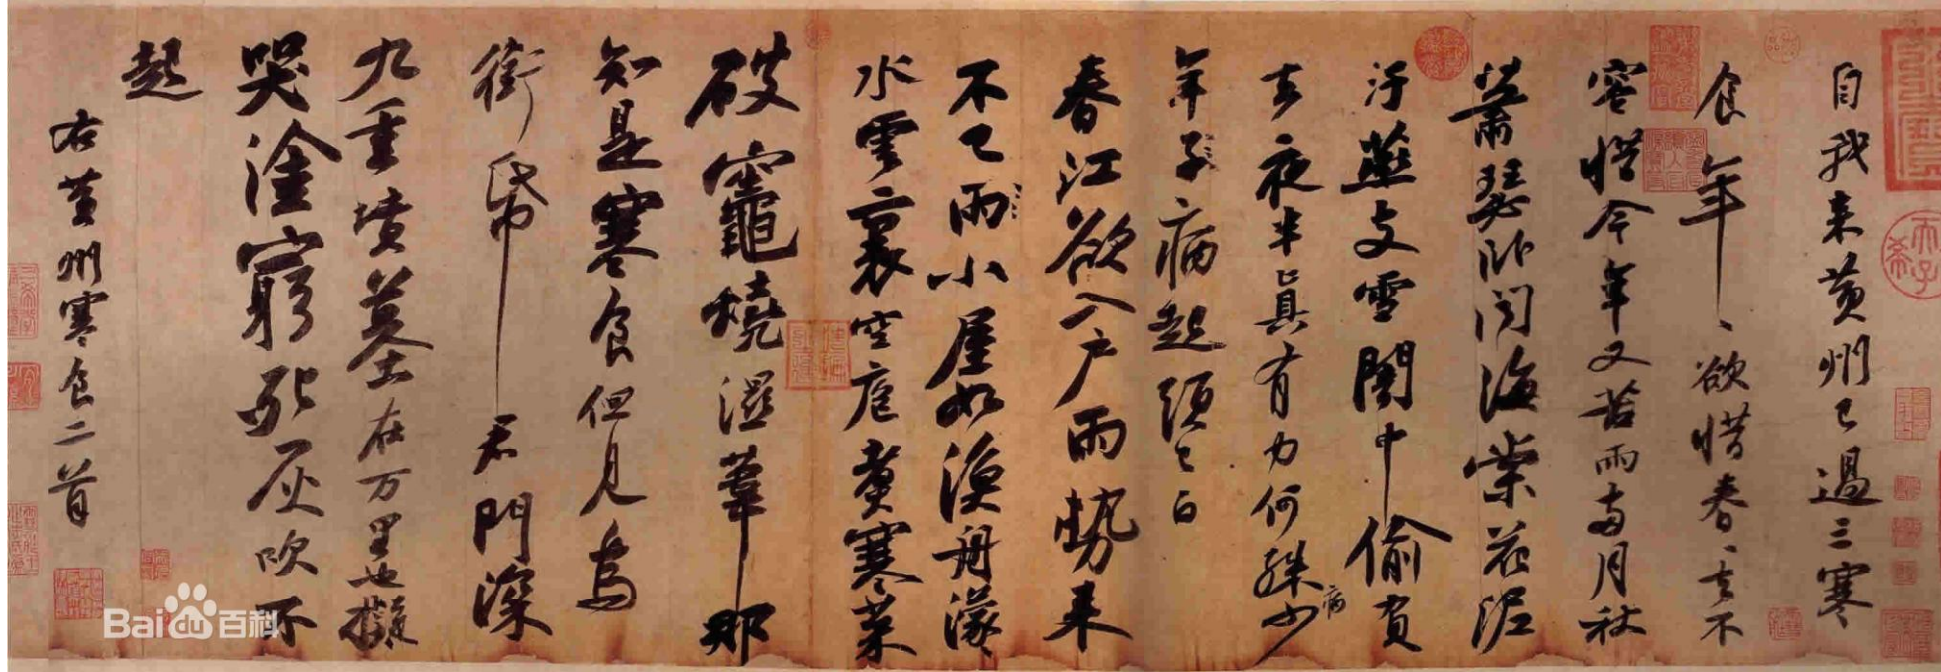 自我来黄州已過三寒
食年、欲惜春、去不
容惜今年又苦雨兩月秋
蕭瑟卧聞海棠花泥
汙燕支雪闇中偷負
去夜半真有力何殊少病
年子病起頭已白
春江欲入户雨勢来
不已雨小屋如漁舟濛
水雲裏空庖煮寒菜
破竈燒濕葦那
知是寒食但見烏
銜帋君門深
九重墳墓在万里也擬
哭塗窮死灰吹不
起
右黄州寒食二首
Bai百科